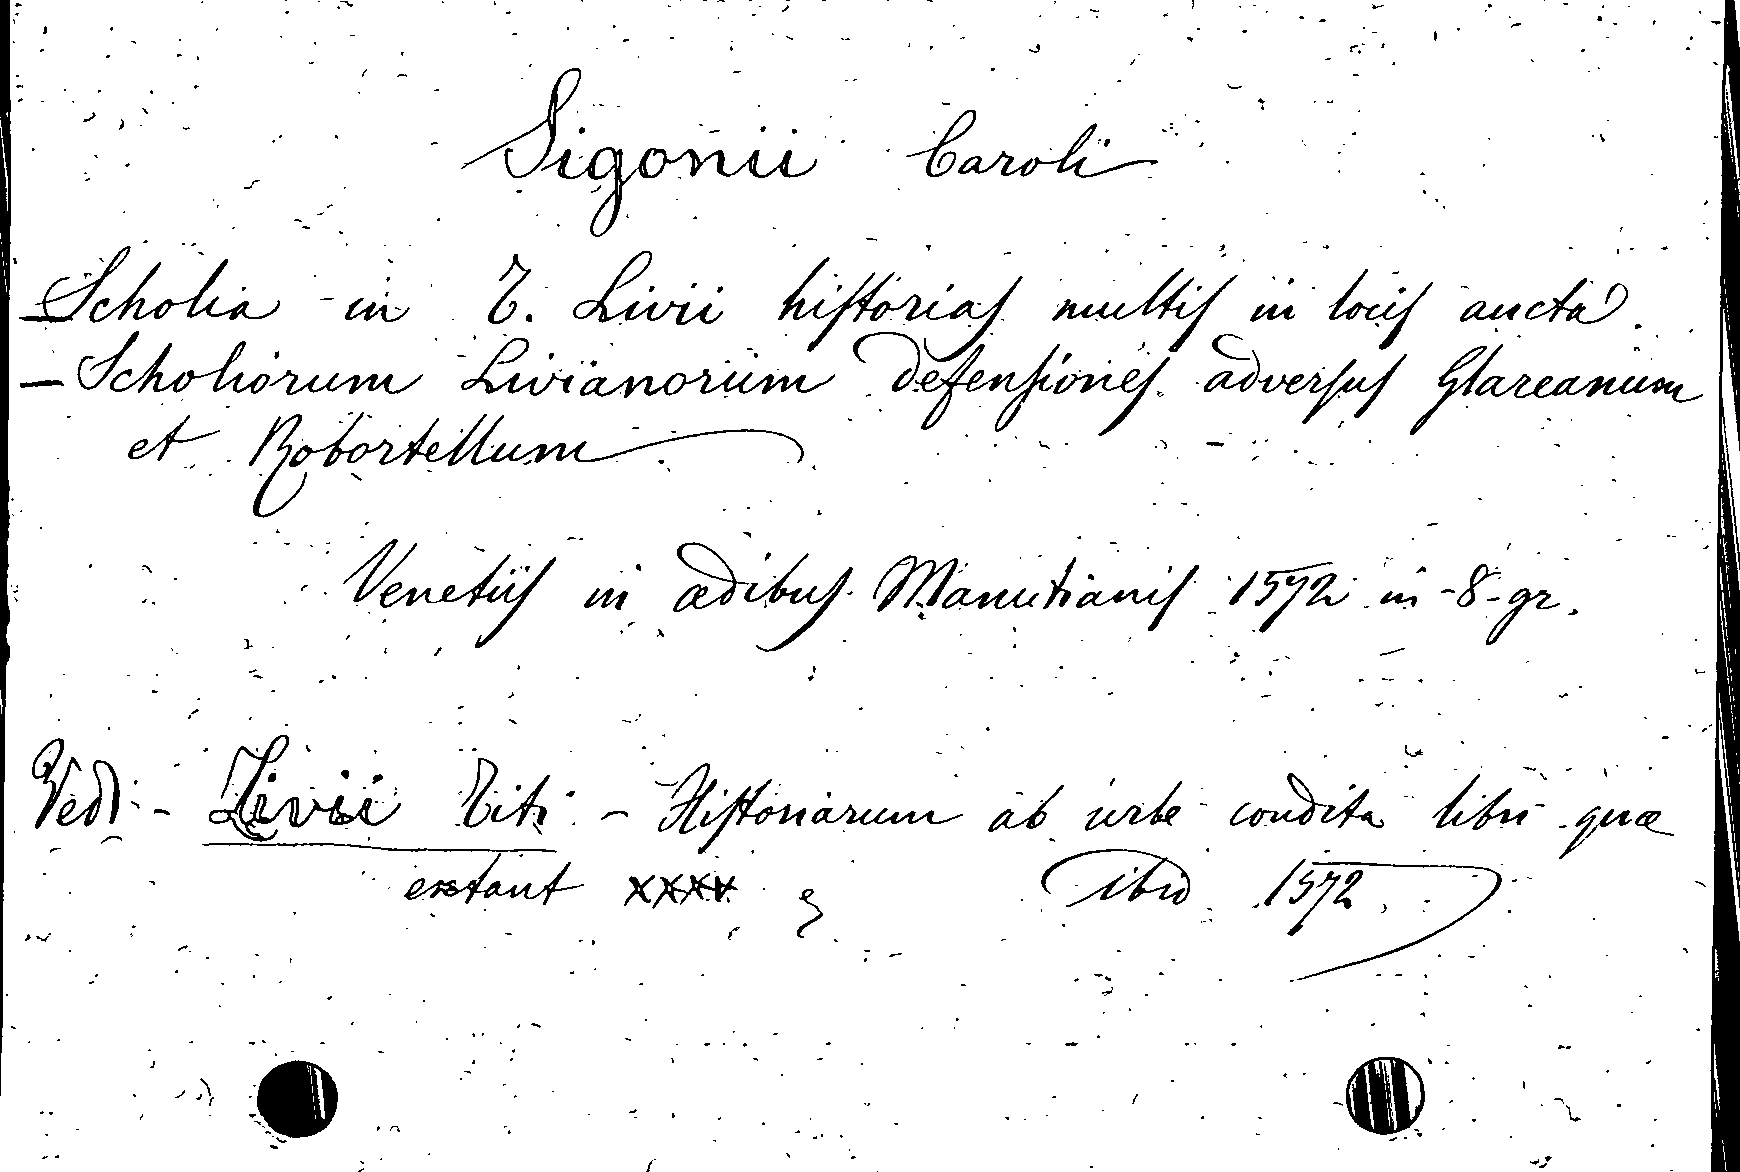 Sigonii Caroli
- Scholia in T. Livii hiſtoriaſ multiſ in lociſ aucta.
- Scholiorum Livianorum defenſioneſ adverſuſ Glareanum
et Robortellum
Venetiiſ in ædibuſ Manutianiſ 1572 in-8-gr.
Vedi - Livii Titi - Hiſtoriarum ab urbe condita libri quæ
extant XXXV ibid 1572